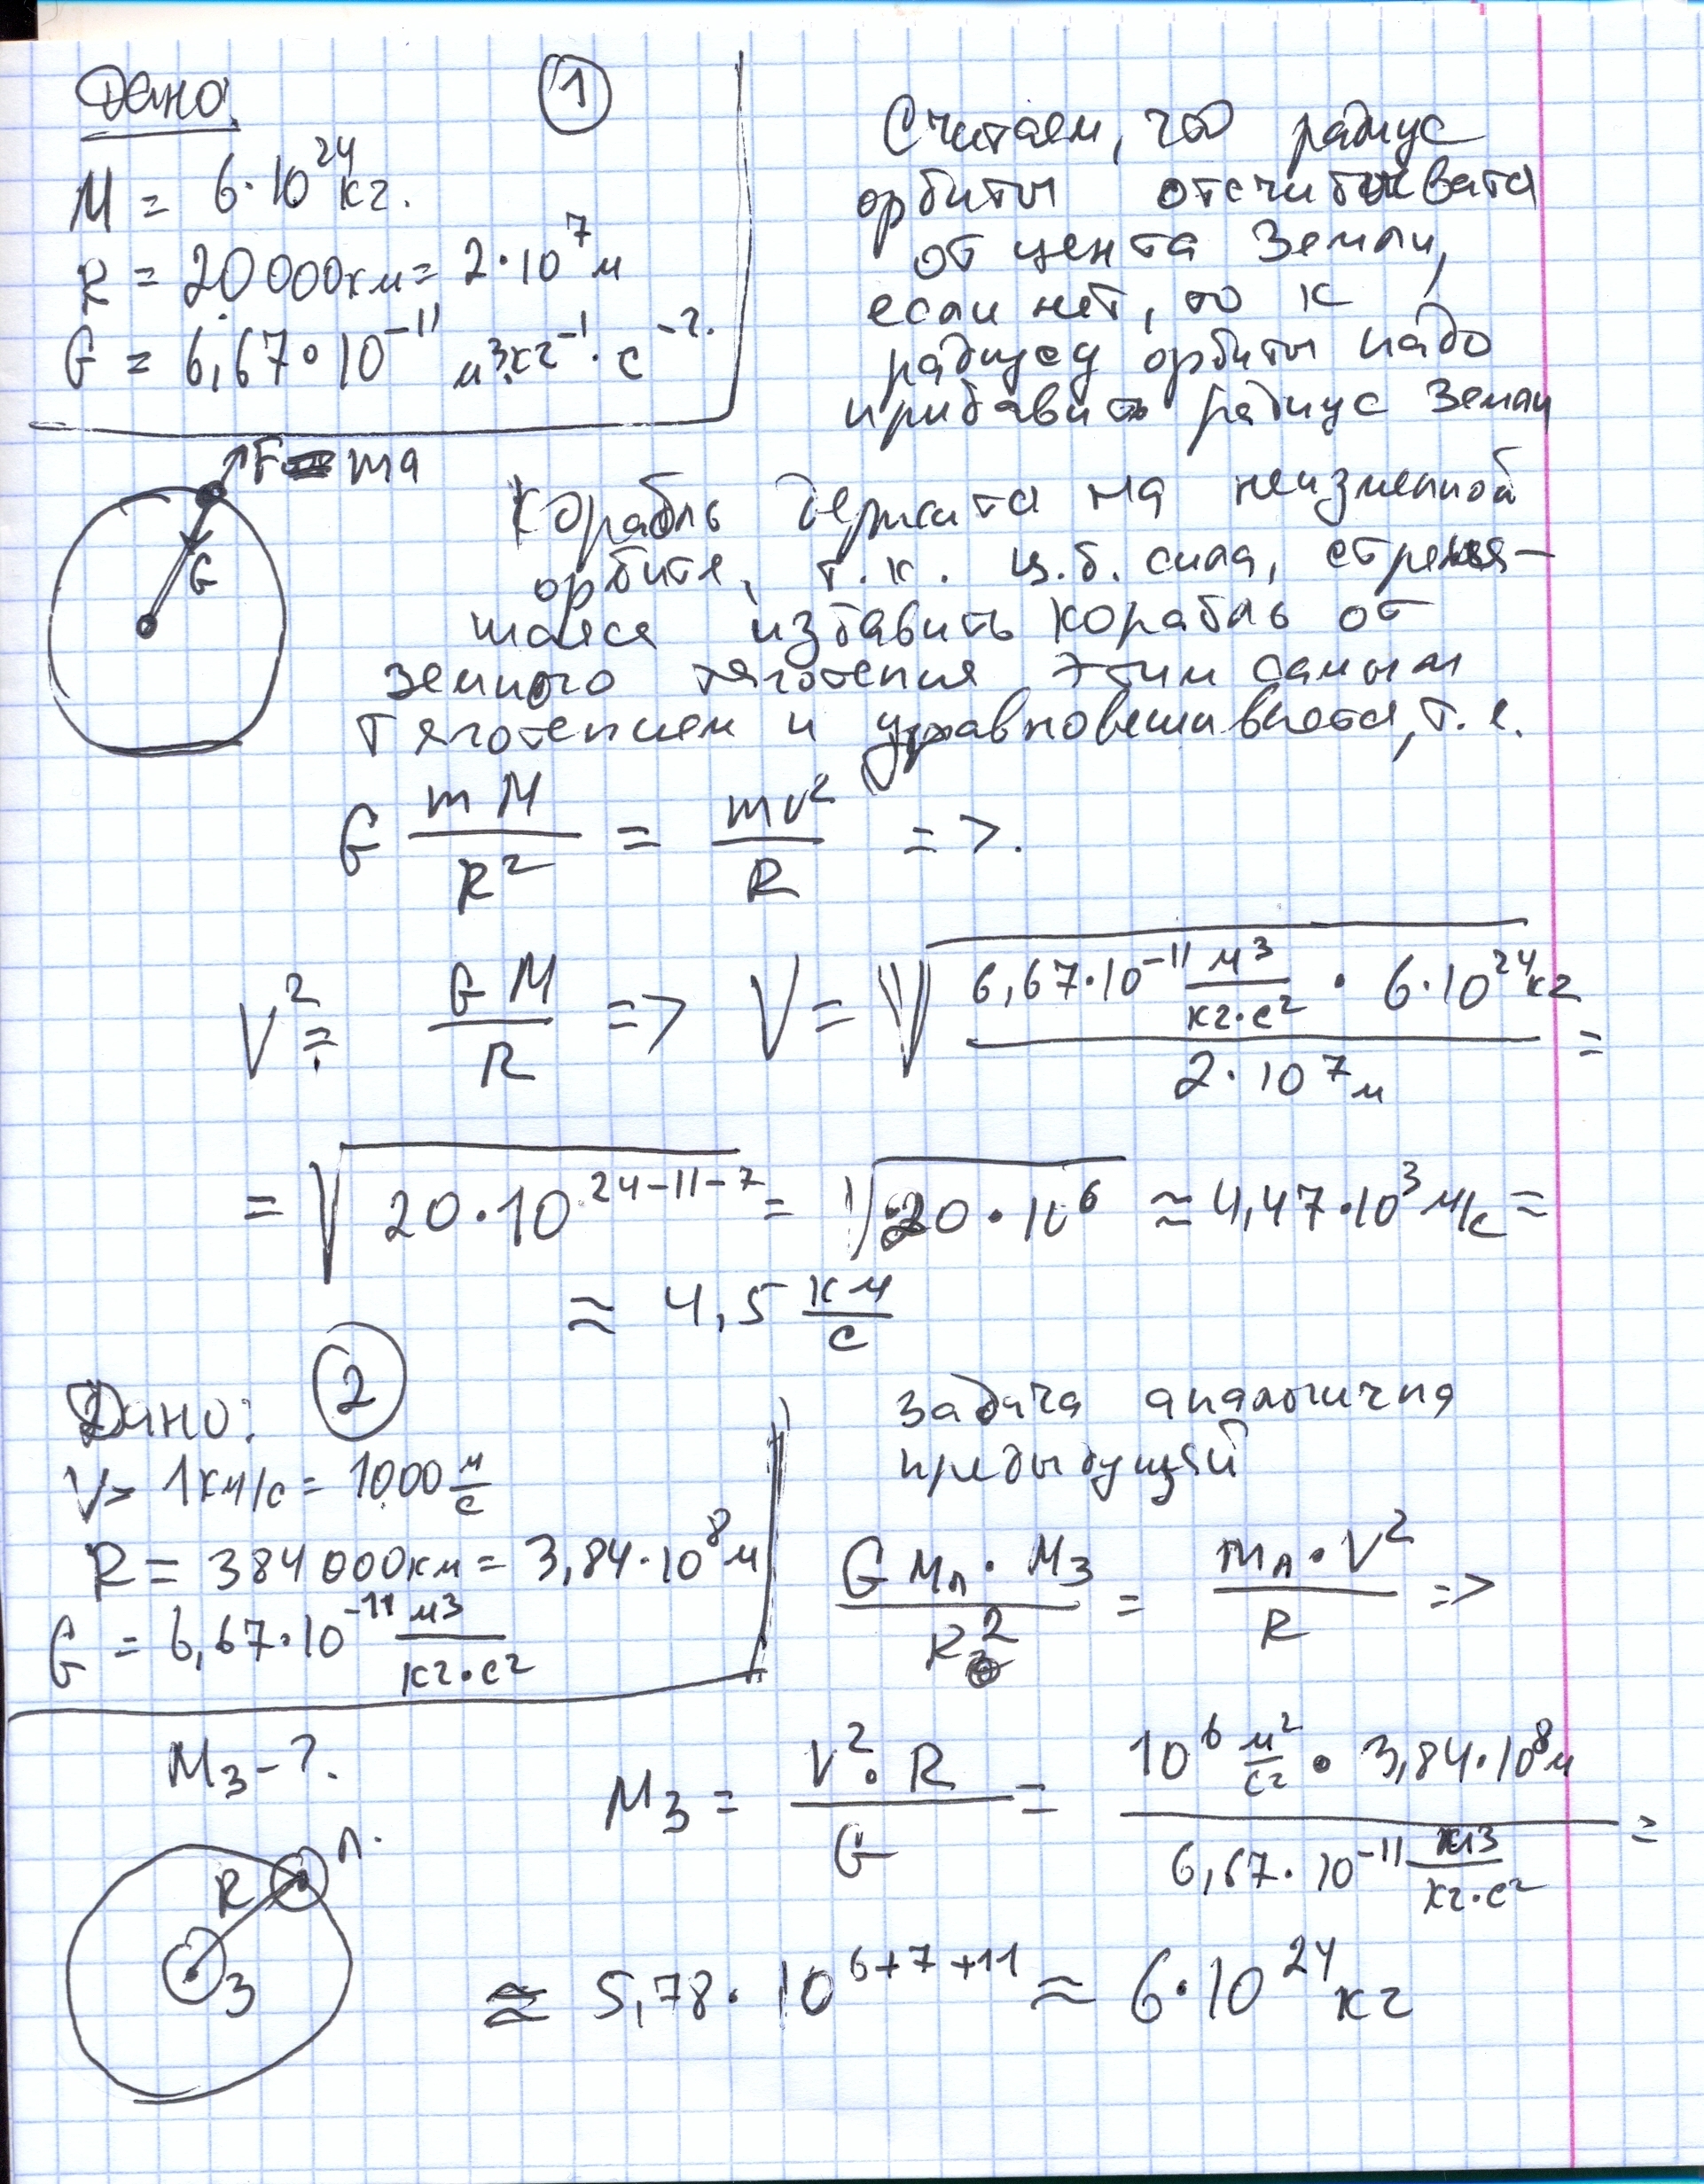 Дано:
①
M = 6·10²⁴ кг.
R = 20 000 км = 2·10⁷ м
G = 6,67·10⁻¹¹ м³·кг⁻¹·с⁻².
Считаем, что радиус
орбиты отсчитывается
от цента Земли,
если нет, то к
радиусу орбиты надо
прибавить радиус Земли
F = ma
G
Корабль держится на неизменной
орбите, т.к. ц.б. сила, стремя-
щаяся избавить корабль от
земного тяготения этим самым
тяготением и уравновешивается, т.е.
G mM/R² = mv²/R =>.
V² = GM/R => V = √(6,67·10⁻¹¹ м³/кг·с² · 6·10²⁴ кг / 2·10⁷ м) =
= √(20·10²⁴⁻¹¹⁻⁷) = √(20·10⁶) ≈ 4,47·10³ м/с =
≈ 4,5 км/с
②
Дано:
V = 1 км/с = 1000 м/с
R = 384 000 км = 3,84·10⁸ м
G = 6,67·10⁻¹¹ м³/кг·с²
Задача аналогична
предыдущей
G Mл · Mз/R² = mл · V²/R =>
Mз - ?.
Mз = V² · R/G = 10⁶ м²/с² · 3,84·10⁸ м / 6,67·10⁻¹¹ м³/кг·с² =
Л.
R
З
≈ 5,78·10⁶⁺⁷⁺¹¹ ≈ 6·10²⁴ кг